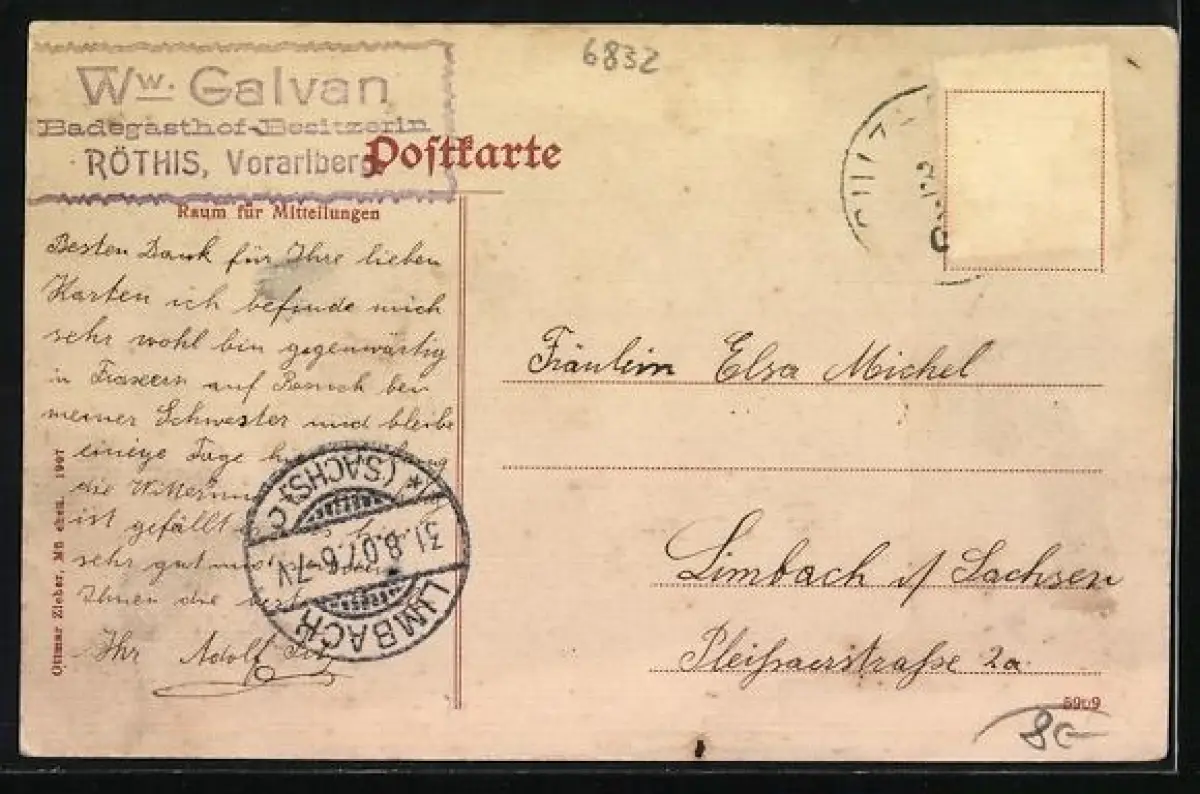 6832
Ww. Galvan
Badegasthof-Besitzerin
RÖTHIS, Vorarlberg
Postkarte
Raum für Mitteilungen
Besten Dank für Ihre lieben
Karten ich befinde mich
sehr wohl bin gegenwärtig
in Fraxern auf Besuch bei
meiner Schwester und bleibe
einige Tage
die Witterung
ist gefällt
sehr gut
Ihnen die
Ihr Adolf
Fräulein Elsa Michel
Limbach i/ Sachsen
Pleißaerstraße 2a
LIMBACH
* (SACHS.) C
31.8.07.6-7V
Ottmar Zieher, München. 1907
5909
80